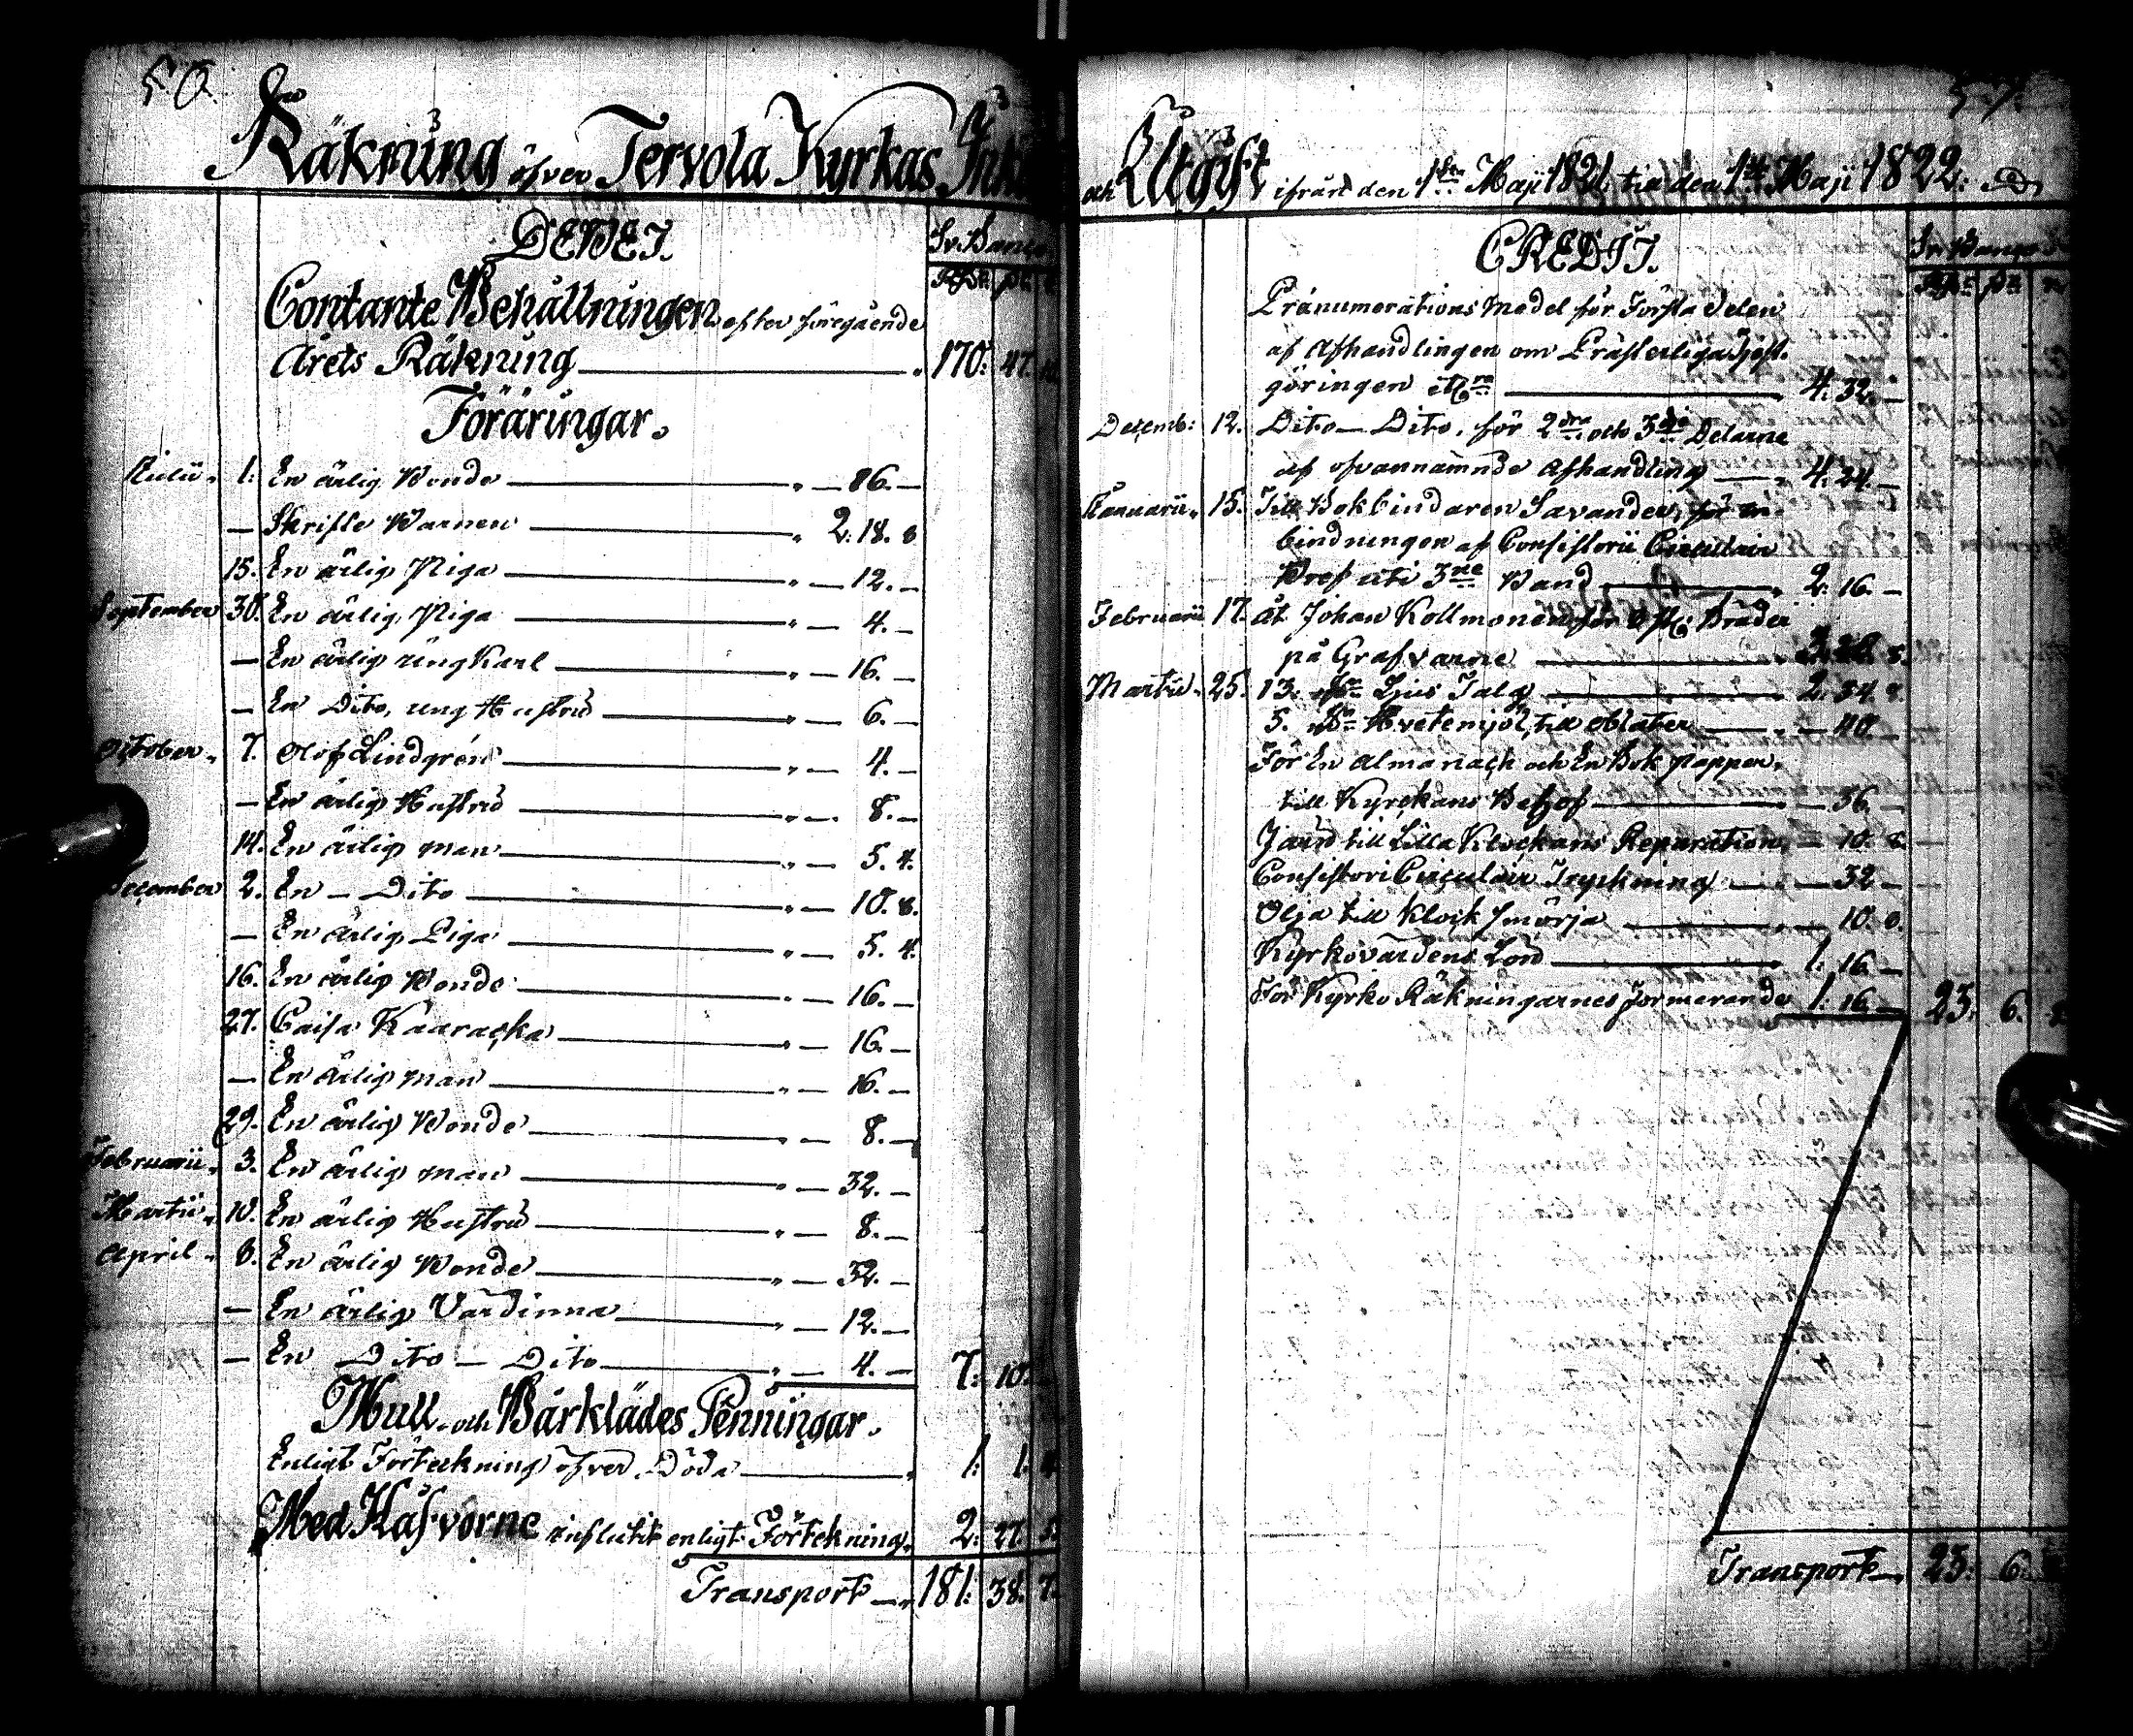 50.
Räkning öfver Tervola Kyrkas
DEBET.
Sv. Banco
Contante Behållningen efter föregående
Årets Räkning — 170: 47.
Föräringar.
Julii. 1: En ärlig Bonde — 86. —
— Skrifte Barnen — 2: 18. 8
15. En ärlig Piga — 12. —
September 30. En ärlig Piga — 4. —
— En ärlig ung Karl — 16. —
— En Dito, ung Hustru — 6. —
October. 7. Olof Lindgrén — 4. —
— En ärlig Hustru — 8. —
14. En ärlig man — 5. 4.
December 2. En — Dito — 10. 8.
— En ärlig Piga — 5. 4.
16. En ärlig Bonde — 16. —
27. Caisa Kaaracka — 16. —
— En ärlig man — 16. —
29. En ärlig Bonde — 8. —
Februarii. 3. En ärlig man — 32. —
Martii. 10. En ärlig Hustru — 8. —
April. 8. En ärlig Bonde — 32. —
— En ärlig Värdinna — 12. —
— En Dito — Dito — 4. — 7: 10.
Mull- och Bårklädes Penningar.
Enligt Förteckning öfver Döda — 1: 1.
Med Håfvorne influtit enligt Förtekning. 2: 27. 5.
Transport — 181: 38. 7.
och Utgift ifrån den 1sta Maji 1821 till den 1sta Maji 1822.
CREDIT.
Sv Banco
Pränumerations medel för Första delen
af Afhandlingen om Prästerliga Tjenst-
göringen — 4: 32. —
Decemb: 12. Dito — Dito. för 2dra och 3dje Delarne
af ofvannämnde Afhandling — 4: 24. —
Januarii. 15. Till Bokbindaren Savander, för in-
bindningen af Consistorii Circulair
Bref uti 3ne Band — 2: 16. —
Februarii 17. åt Johan Kollmonen för Bräder
på Grafvarne —
Martii. 25. 13. Ljus Talg — 2: 34. 8.
5. Hvetemjöl till Oblater — 40. —
För En Almanach och En Bok Papper,
till Kyrckans Behof — 36. —
Jarn till Lilla Klockans Reparation — 10. 8.
Consistorii Circulair Tryckning — 32 —
Olja till Klock smörja — 10. 8.
Kyrkovärdens Lön — 1: 16. —
För Kyrko Räkningarnes formerande 1: 16. — 23: 6.
Transport — 23: 6.